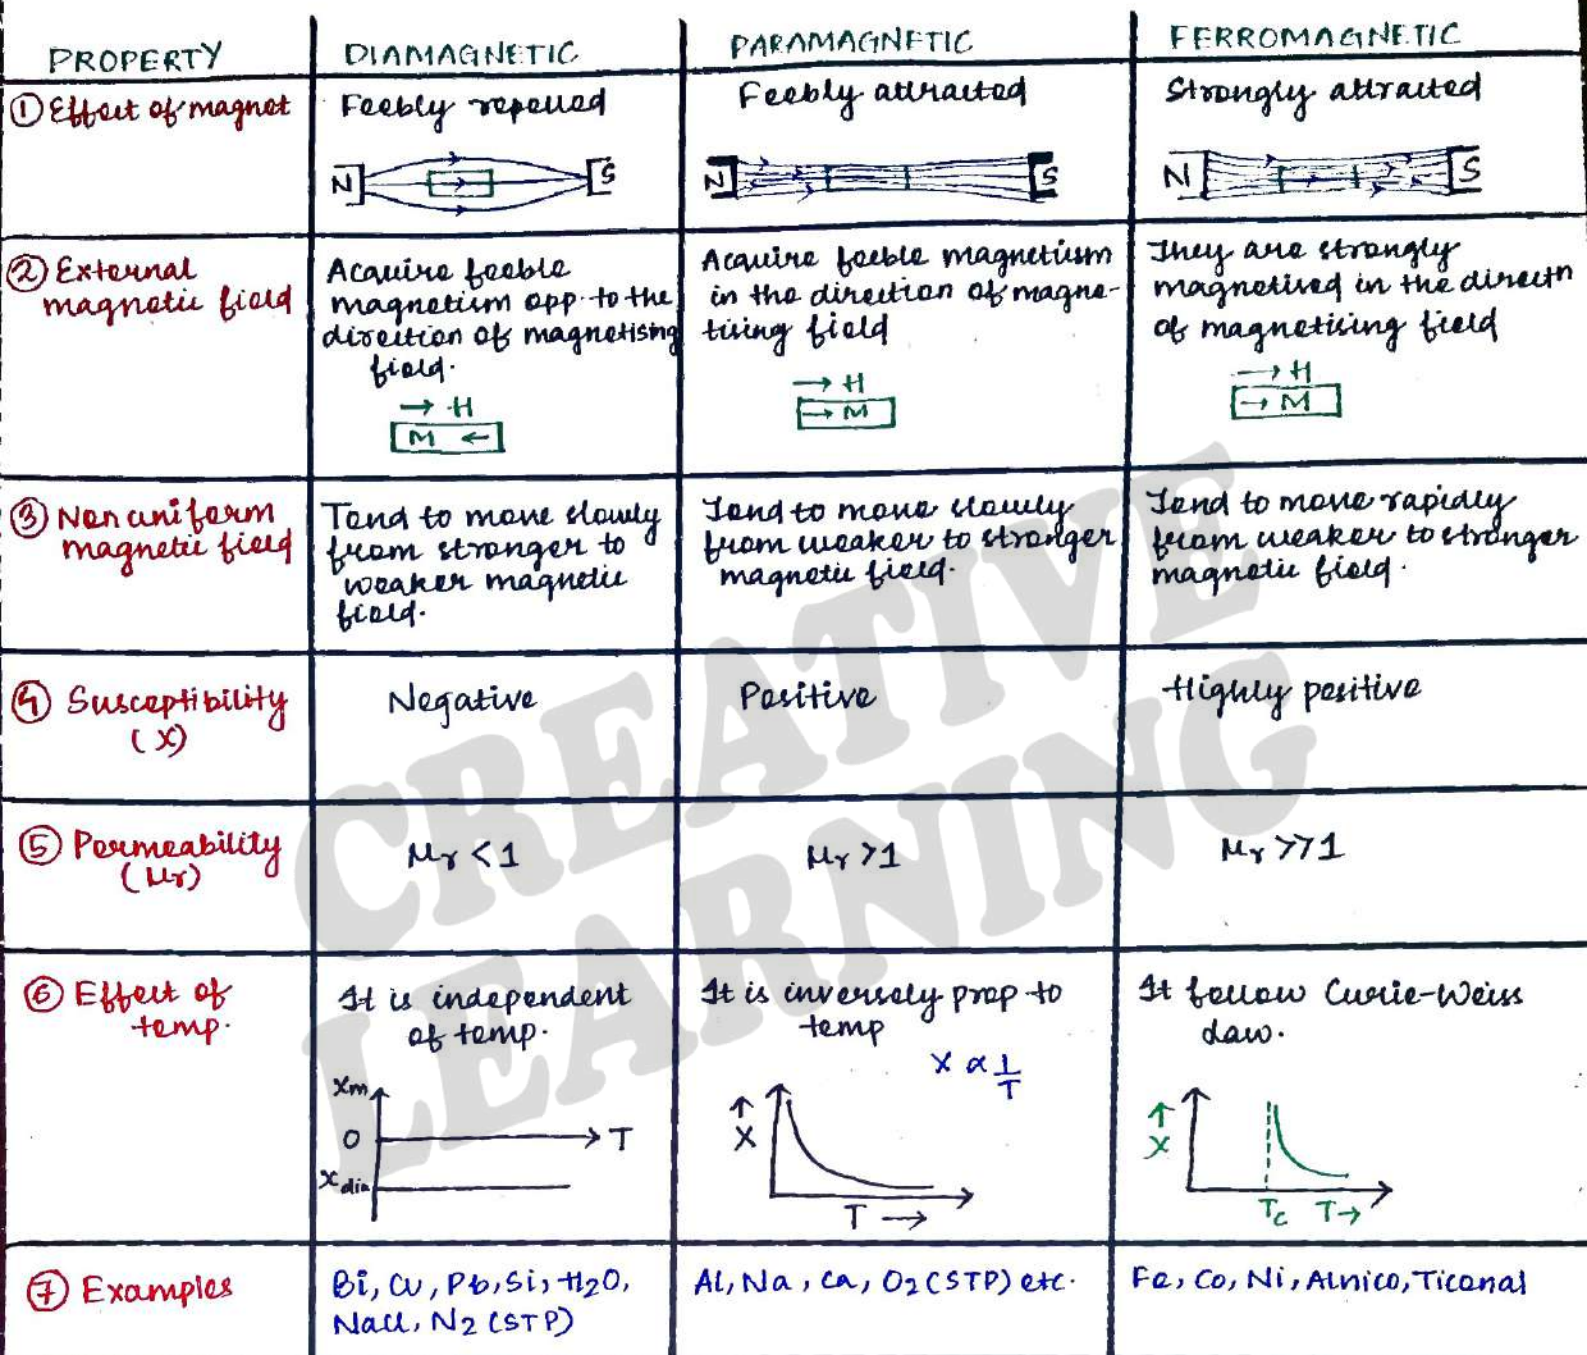 PROPERTY
DIAMAGNETIC
PARAMAGNETIC
FERROMAGNETIC
① Effect of magnet
Feebly repelled
N S
Feebly attracted
N S
Strongly attracted
N S
② External
magnetic field
Acquire feeble
magnetism opp. to the
direction of magnetising
field.
→ H
M ←
Acquire feeble magnetism
in the direction of magne-
tising field
→ H
→ M
They are strongly
magnetised in the directn
of magnetising field
→ H
→ M
③ Non uniform
magnetic field
Tend to move slowly
from stronger to
weaker magnetic
field.
Tend to move slowly
from weaker to stronger
magnetic field.
Tend to move rapidly
from weaker to stronger
magnetic field.
④ Susceptibility
(χ)
Negative
Positive
Highly positive
⑤ Permeability
(μr)
μr < 1
μr > 1
μr >> 1
⑥ Effect of
temp.
It is independent
of temp.
χm
O
T
χdia
It is inversely prop to
temp
χ ∝ 1/T
↑
χ
T →
It follow Curie-Weiss
Law.
↑
χ
Tc T→
⑦ Examples
Bi, Cu, Pb, Si, H2O,
NaCl, N2 (STP)
Al, Na, Ca, O2 (STP) etc.
Fe, Co, Ni, Alnico, Ticonal
CREATIVE
LEARNING